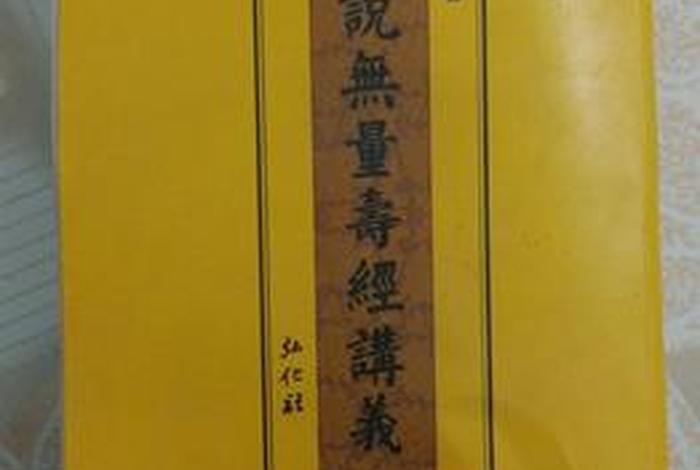 說無量壽經講義
弘化社